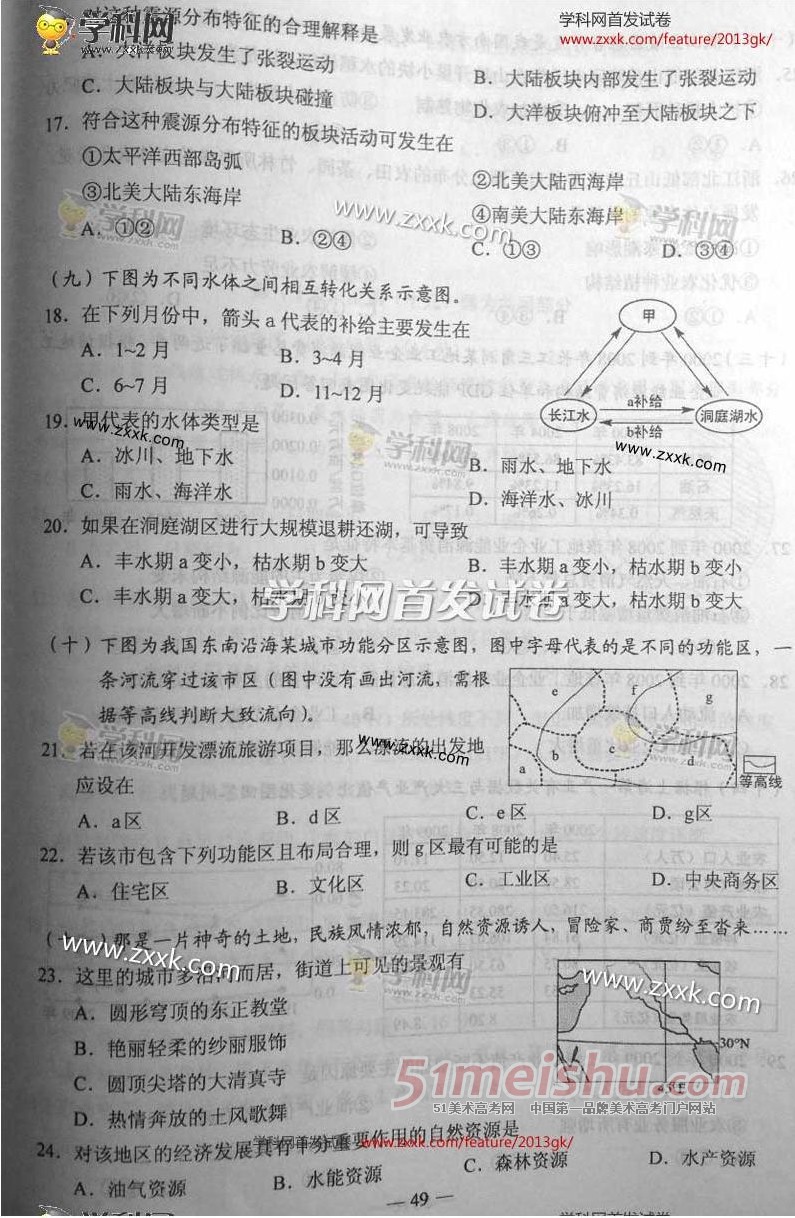 学科网首发试卷
www.zxxk.com/feature/2013gk/
对这种震源分布特征的合理解释是
A．大洋板块发生了张裂运动
B．大陆板块内部发生了张裂运动
C．大陆板块与大陆板块碰撞
D．大洋板块俯冲至大陆板块之下
17．符合这种震源分布特征的板块活动可发生在
①太平洋西部岛弧
②北美大陆西海岸
③北美大陆东海岸
④南美大陆东海岸
学科网
www.zxxk.com
A．①②
B．②④
C．①③
D．③④
（九）下图为不同水体之间相互转化关系示意图。
18．在下列月份中，箭头a代表的补给主要发生在
A．1~2月
B．3~4月
C．6~7月
D．11~12月
甲
长江水
a补给
b补给
洞庭湖水
19．甲代表的水体类型是
www.zxxk.com
学科网
www.zxxk.com
A．冰川、地下水
B．雨水、地下水
C．雨水、海洋水
D．海洋水、冰川
20．如果在洞庭湖区进行大规模退耕还湖，可导致
A．丰水期a变小，枯水期b变大
B．丰水期a变小，枯水期b变小
C．丰水期a变大，枯水期b变小
D．丰水期a变大，枯水期b变大
学科网首发试卷
（十）下图为我国东南沿海某城市功能分区示意图，图中字母代表的是不同的功能区，一
条河流穿过该市区（图中没有画出河流，需根
据等高线判断大致流向）。
e
f
g
a
b
c
d
等高线
学科网
21．若在该河开发漂流旅游项目，那么漂流的出发地
应设在
www.zxxk.com
A．a区
B．d区
C．e区
D．g区
22．若该市包含下列功能区且布局合理，则g区最有可能的是
A．住宅区
B．文化区
C．工业区
D．中央商务区
（十一）那是一片神奇的土地，民族风情浓郁，自然资源诱人，冒险家、商贾纷至沓来……
www.zxxk.com
学科网
www.zxxk.com
23．这里的城市多沿河而居，街道上可见的景观有
A．圆形穹顶的东正教堂
B．艳丽轻柔的纱丽服饰
C．圆顶尖塔的大清真寺
D．热情奔放的土风歌舞
30°N
45°E
51meishu.com
51美术高考网 中国第一品牌美术高考门户网站
24．对该地区的经济发展具有十分重要作用的自然资源是
学科网首发试卷
www.zxxk.com/feature/2013gk/
A．油气资源
B．水能资源
C．森林资源
D．水产资源
— 49 —
学科网首发试卷